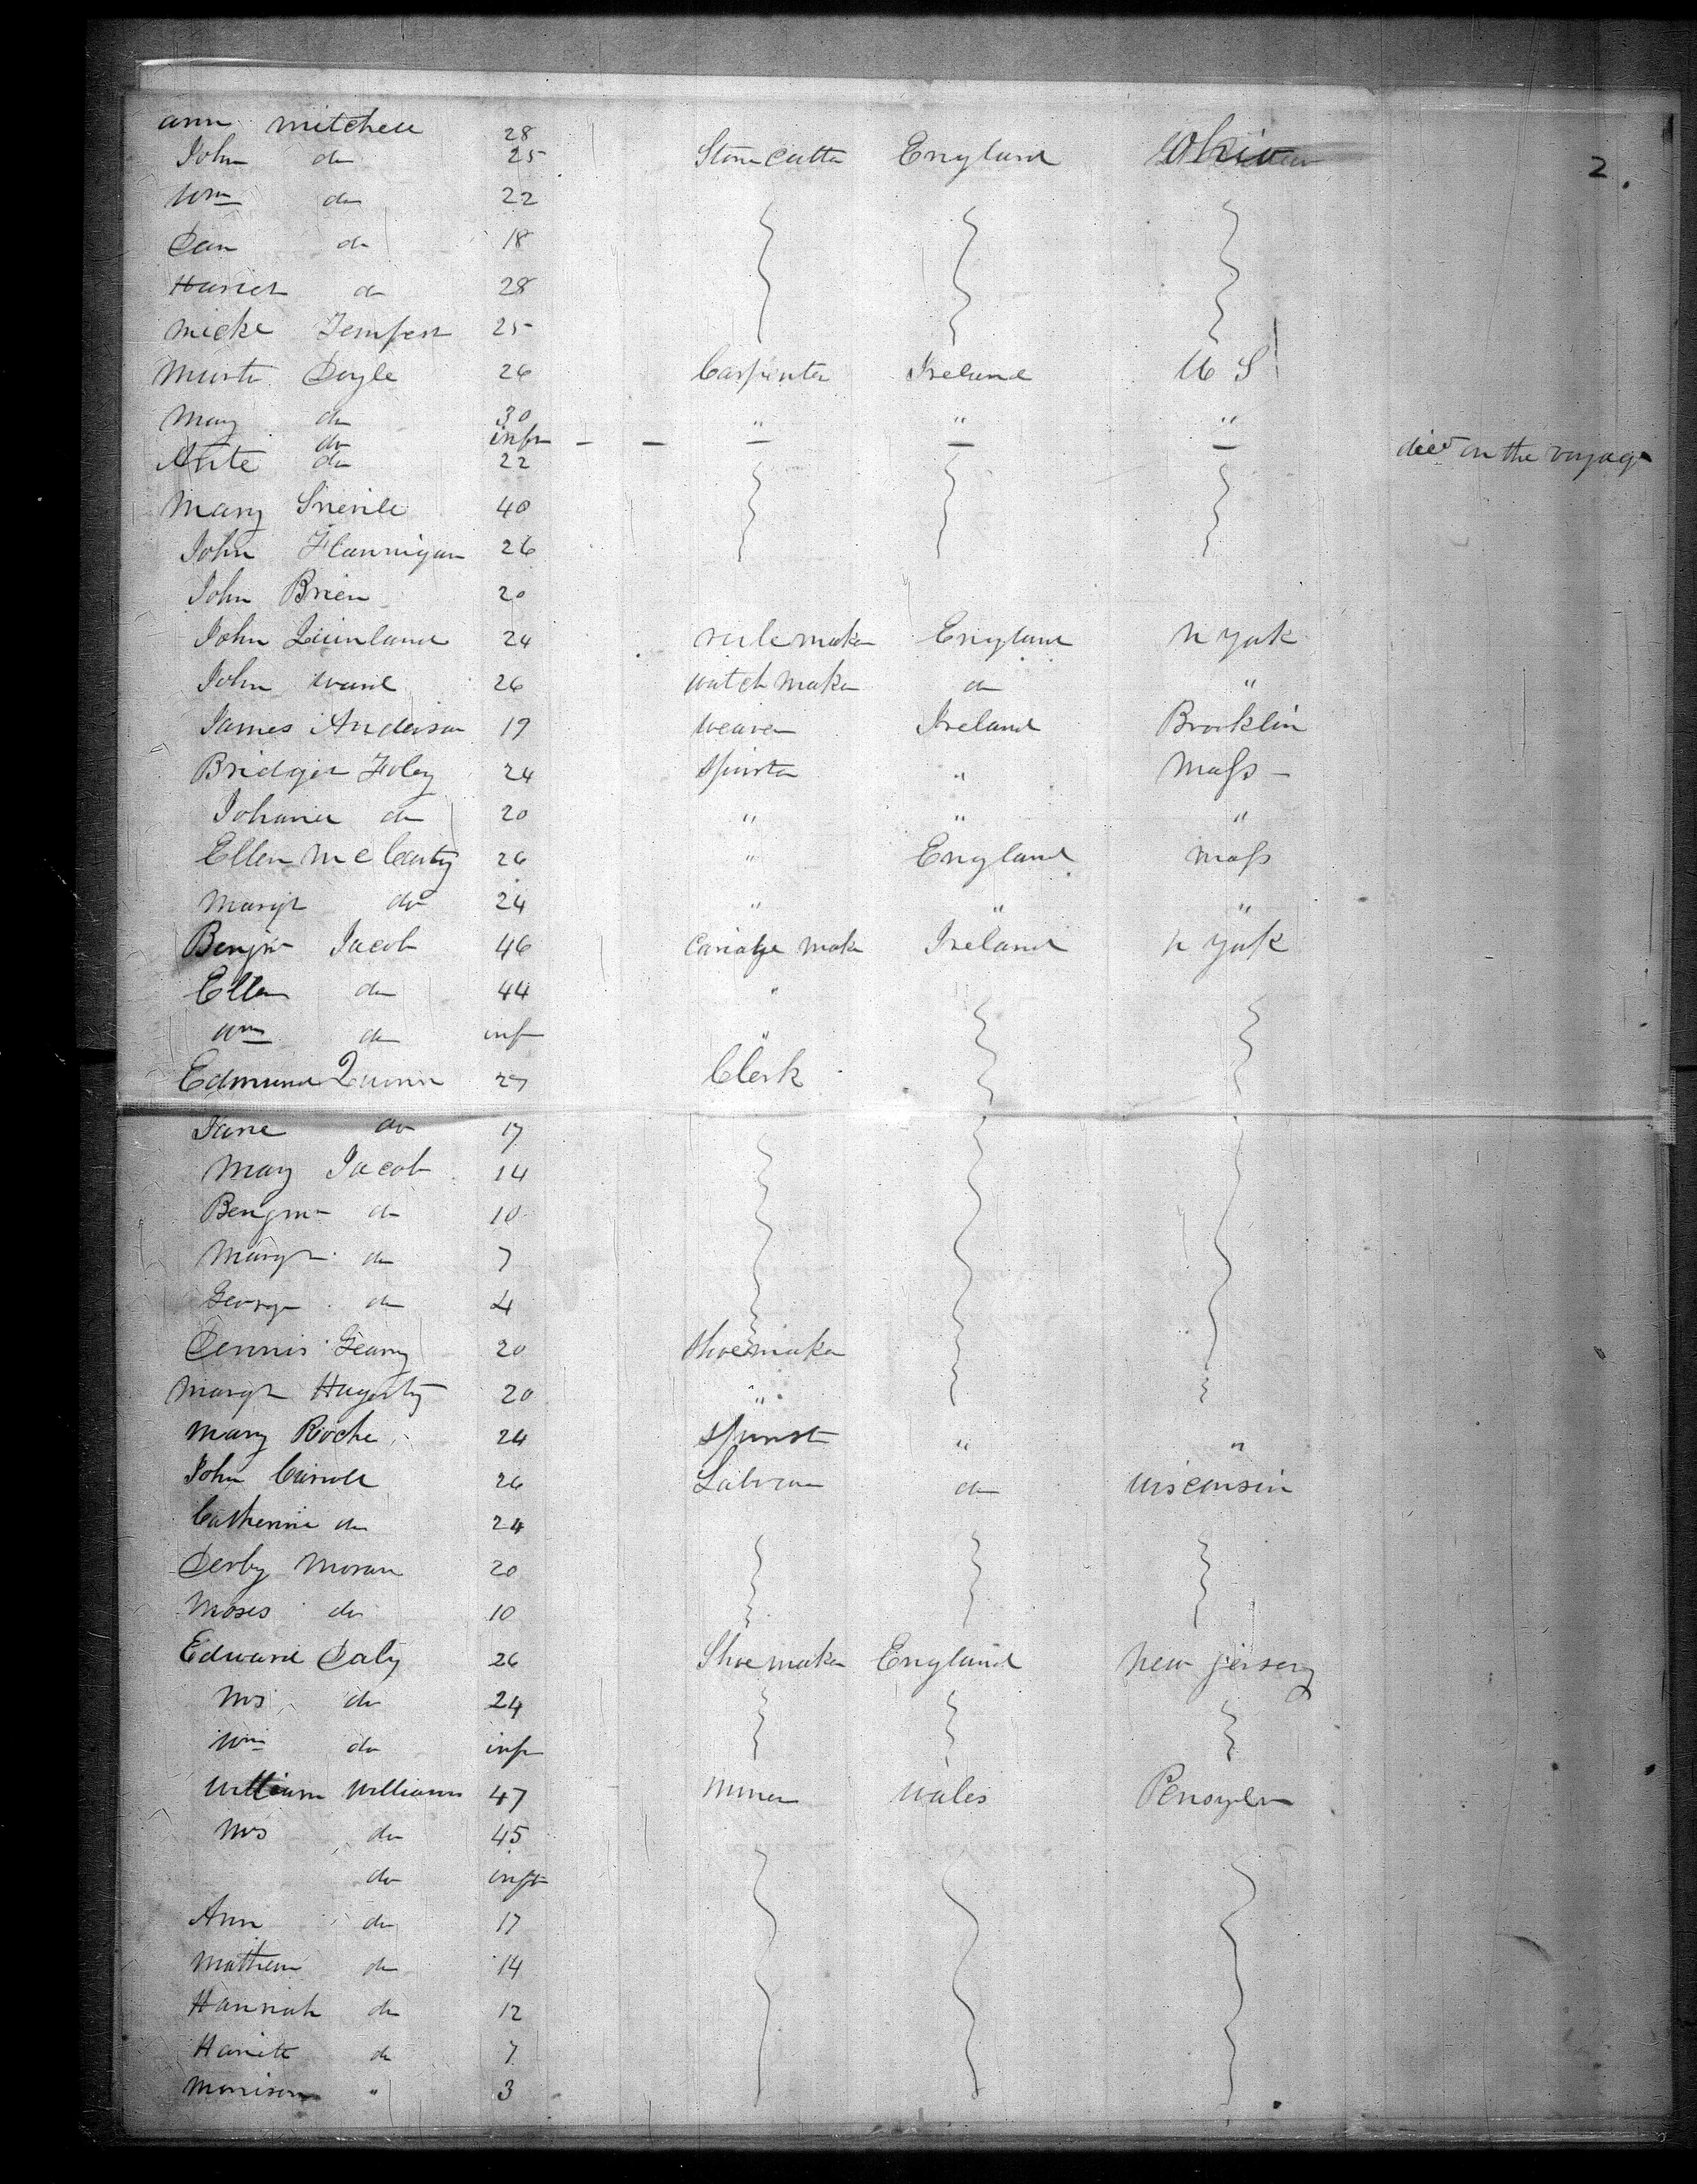 Ann Mitchell 28
John do 25 Stone Cutter England Ohio
2.
Wm do 22
Dan do 18
Hariet do 28
Micke Tempest 25
Doyle 26 Carpenter Ireland U S
Mary do 30 " " "
do infn — — — — — died on the voyage
do 22
Mary 40
John Flannigan 26
John Brien 20
John Quinland 24 rule maker England N York
John Ward 26 watch maker do "
James Anderson 19 weaver Ireland Brooklin
Bridget Foley 24 spinster " Mass —
Johana do 20 " " "
Ellen McCarty 26 " England Mass
Margt do 24 " " "
Benjn Jacob 46 Cariage mak Ireland N York
Ellen do 44 "
Wm do inf "
Edmund Quinn 27 Clerk
Jane do 17
Mary Jacob 14
Bengmn do 10
Margt do 7
George do 4
Dennis Geary 20 Shoemaker
Margt Hagerty 20 "
Mary Roche 24 spinst " "
John Carroll 26 Labourer do Wisconsin
Catherine do 24
Derby Moran 20
Moses do 10
Edward Daly 26 Shoe maker England New jersey
Mrs do 24
Wm do infn
William Williams 47 Miner Wales Pensyln
Mrs do 45
do infn
Ann do 17
Mathew do 14
Hannah do 12
Hariett do 7
Morison " 3